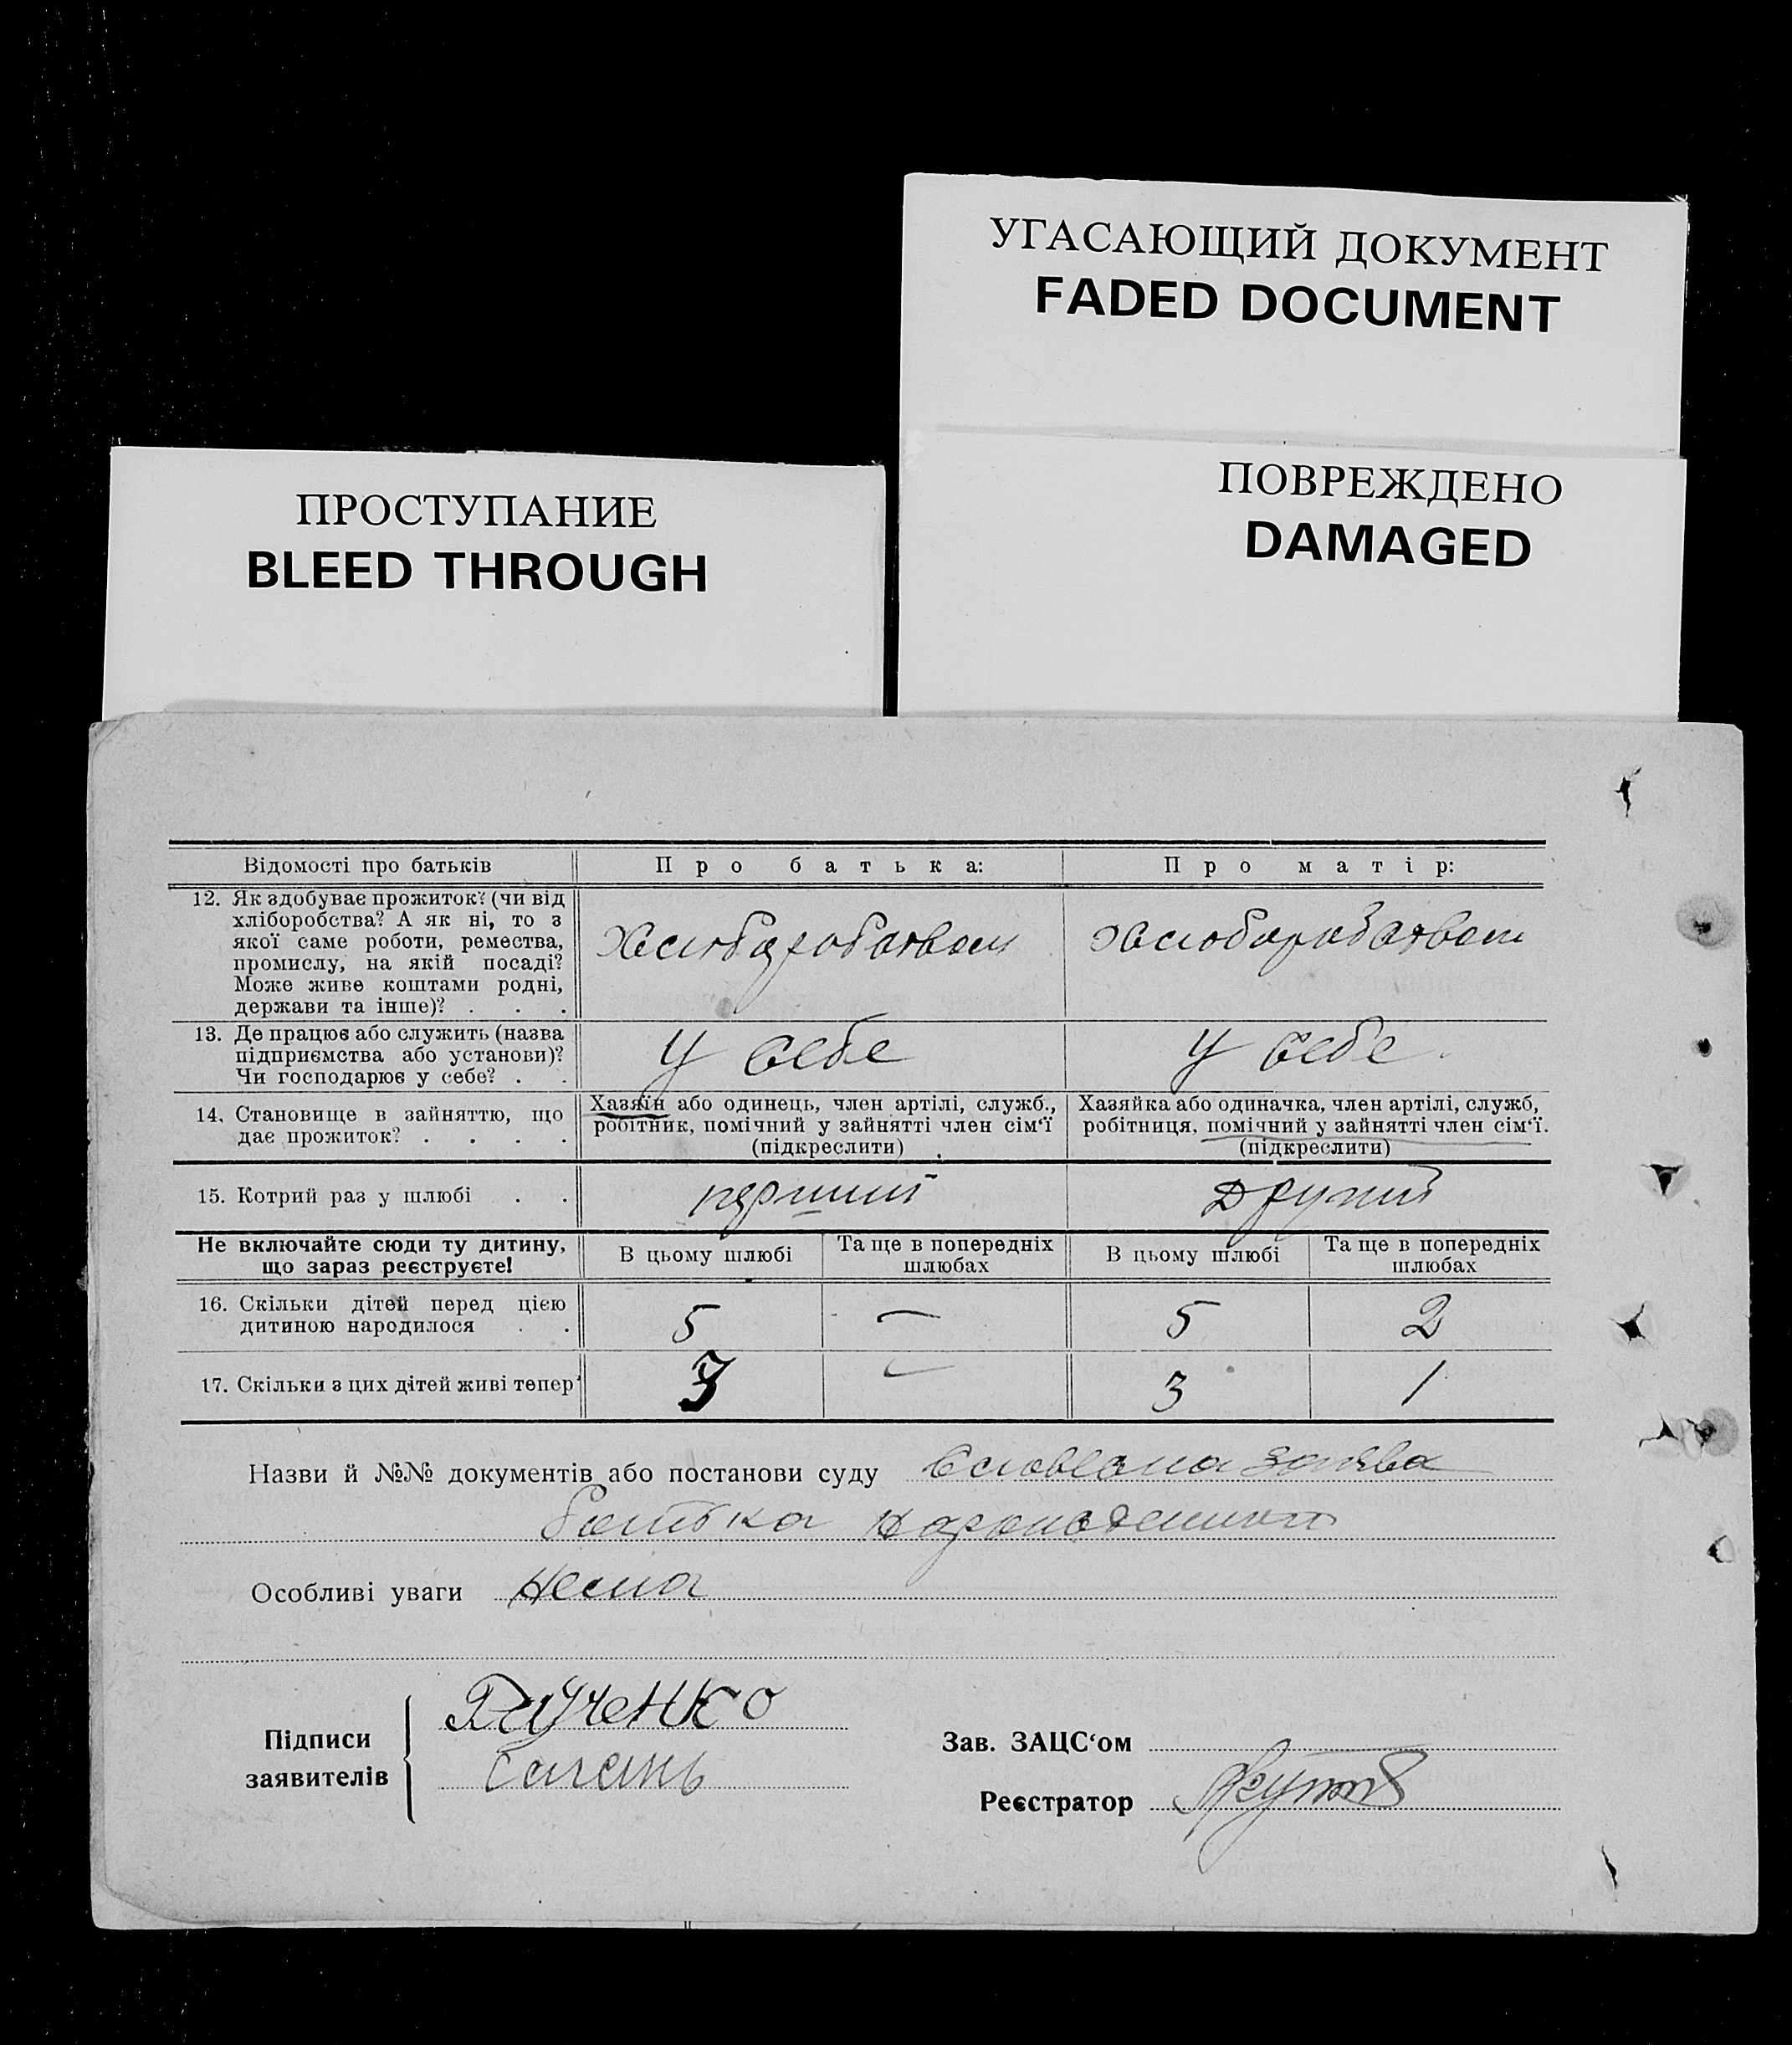 УГАСАЮЩИЙ ДОКУМЕНТ
FADED DOCUMENT
ПОВРЕЖДЕНО
DAMAGED
ПРОСТУПАНИЕ
BLEED THROUGH
Відомості про батьків
Про батька:
Про матір:
12. Як здобуває прожиток? (чи від
хліборобства? А як ні, то з
якої саме роботи, ремества,
промислу, на якій посаді?
Може живе коштами родні,
держави та інше)? . . .
Хлюбаробством
Хлюбаробством
13. Де працює або служить (назва
підприємства або установи)?
Чи господарює у себе? . .
У себе
У себе
14. Становище в зайняттю, що
дає прожиток? . . . .
Хазяїн або одинець, член артілі, служб.,
робітник, помічний у зайнятті член сім‘ї
(підкреслити)
Хазяйка або одиначка, член артілі, служб,
робітниця, помічний у зайнятті член сім‘ї.
(підкреслити)
15. Котрий раз у шлюбі . .
перший
Другий
Не включайте сюди ту дитину,
що зараз реєструєте!
В цьому шлюбі
Та ще в попередніх
шлюбах
В цьому шлюбі
Та ще в попередніх
шлюбах
16. Скільки дітей перед цією
дитиною народилося . .
5
—
5
2
17. Скільки з цих дітей живі тепер
3
—
3
1
Назви й №№ документів або постанови суду Словесна заява
батька
Особливі уваги Нема
Підписи
заявителів
Зав. ЗАЦС‘ом
Реєстратор